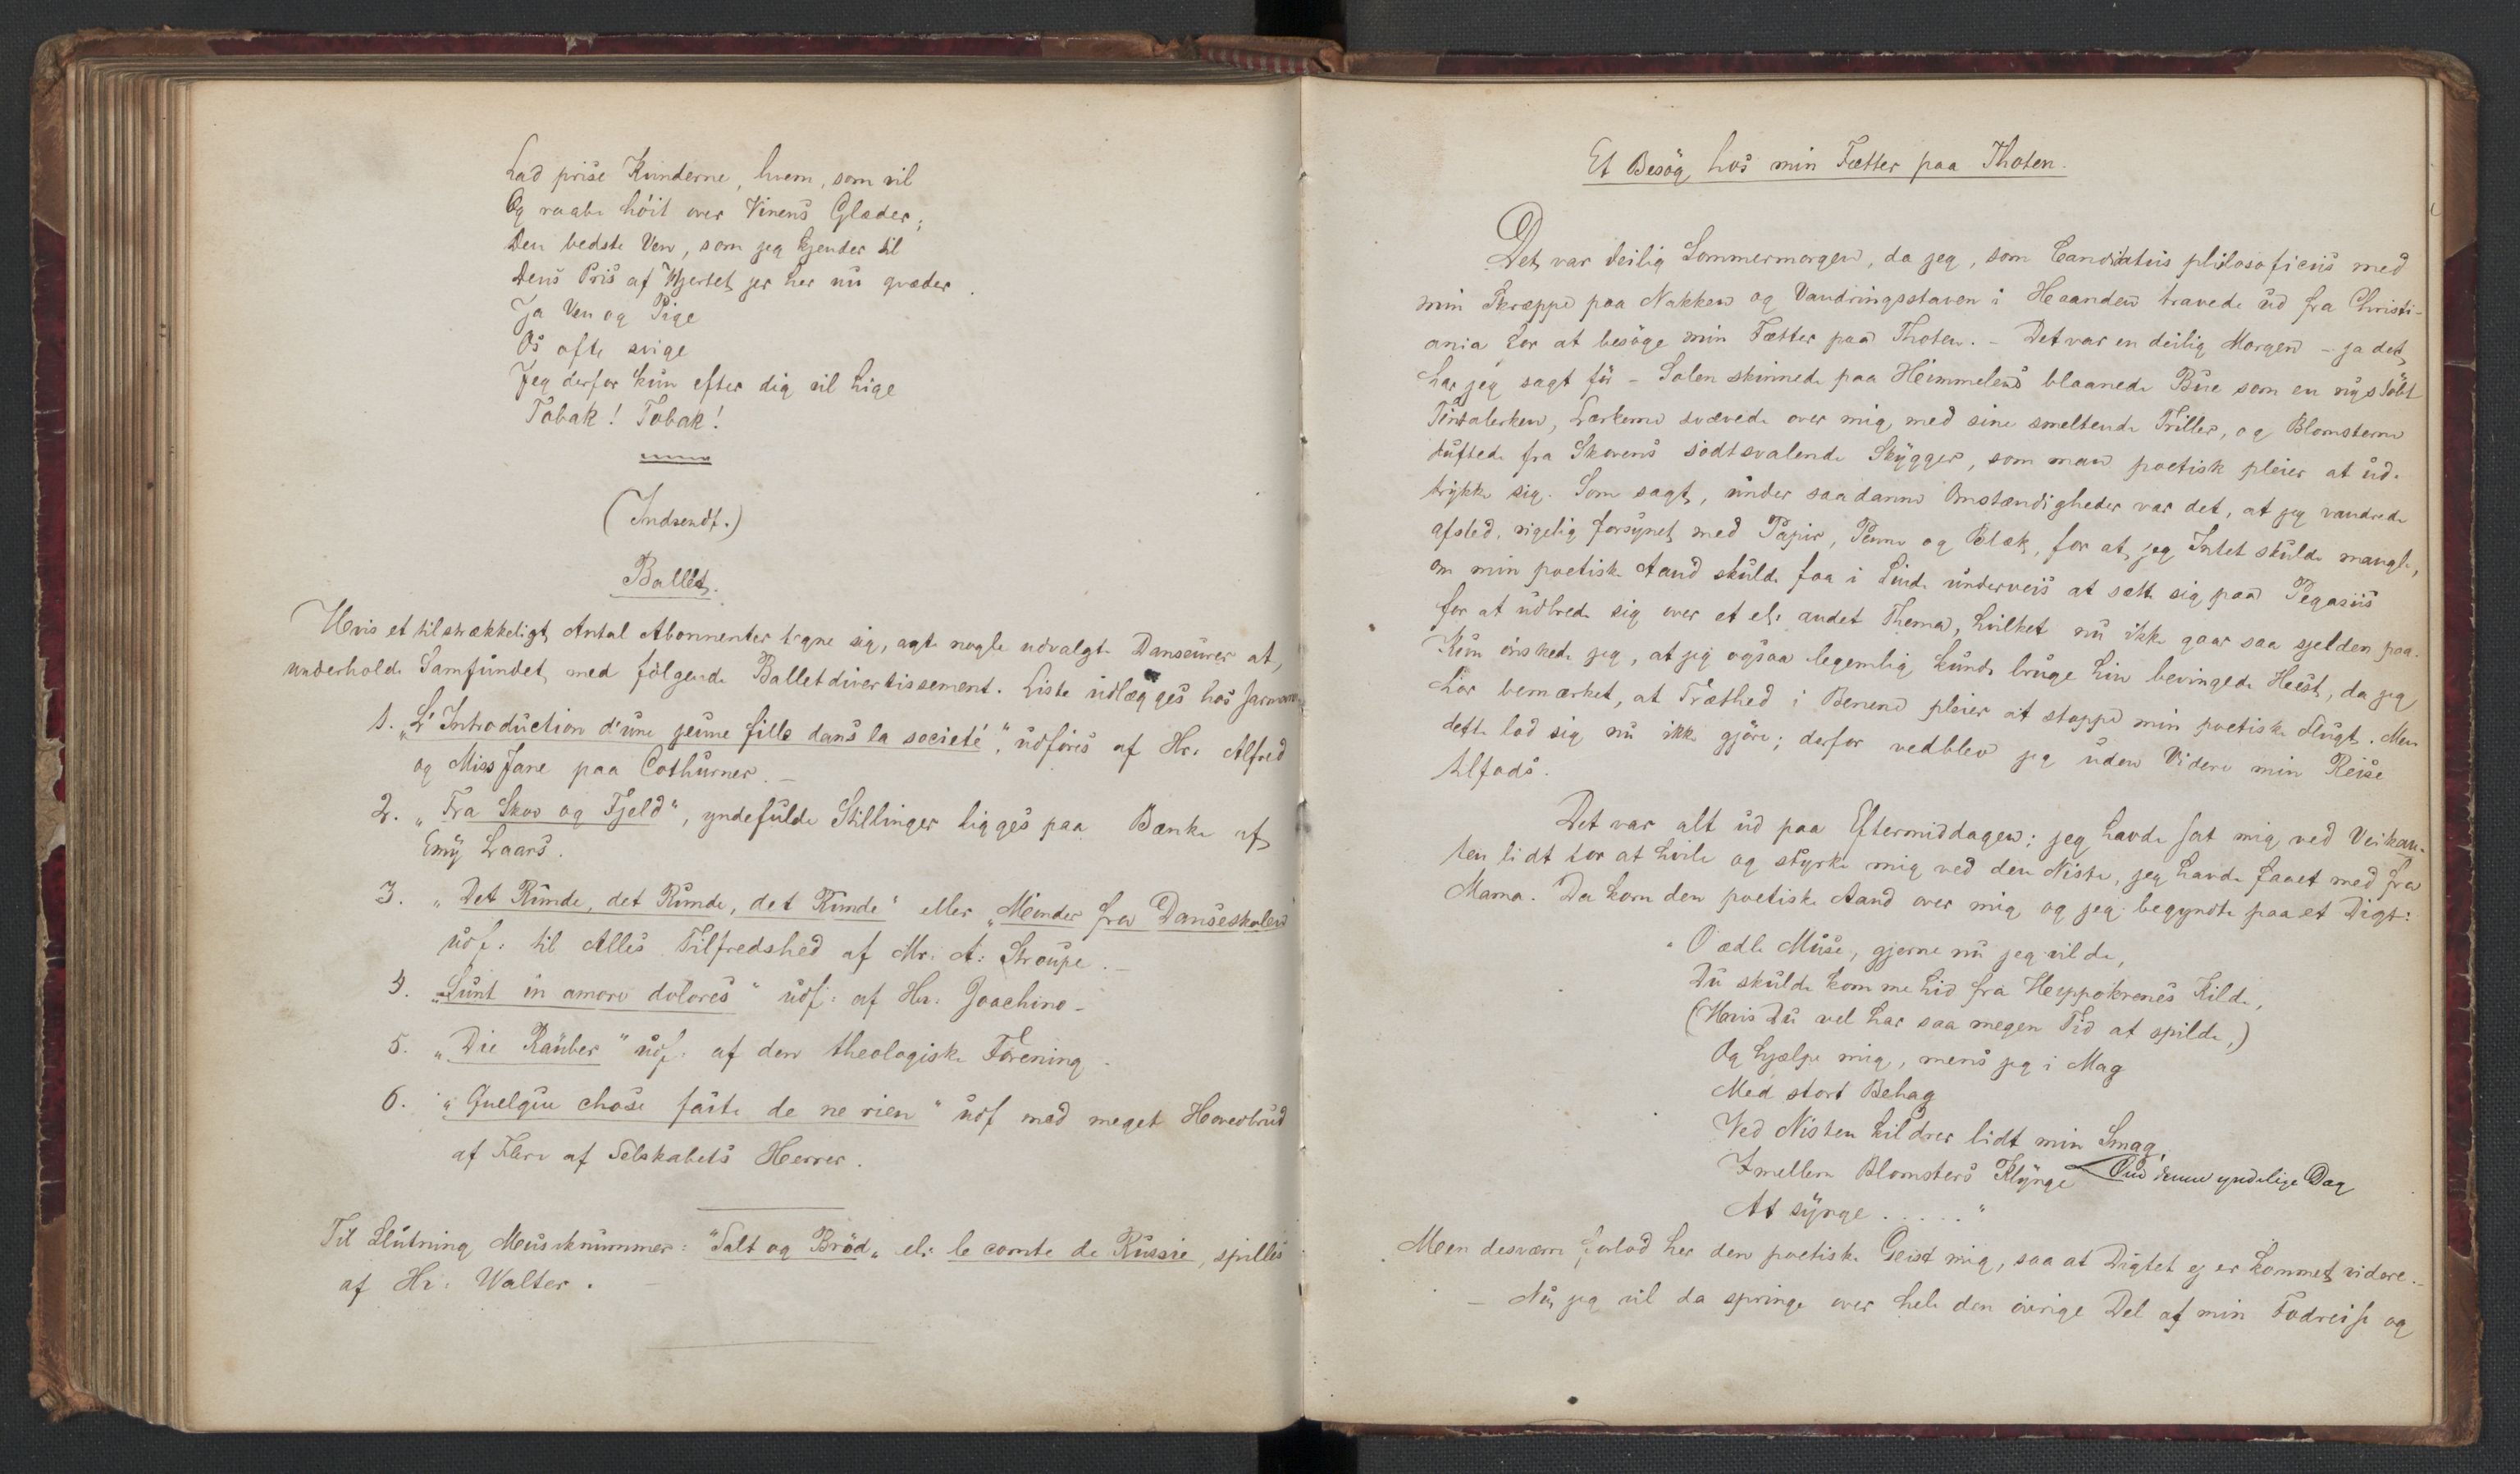 Lad prise Kvinderne, hvem, som vil
Og raabe höit over Vinens Glæder;
Den bedste Ven, som jeg kjender til
Dens Pris af Hjertet jeg her nu qvæder.
Ja Ven og Pige
Os ofte svige
Jeg derfor kun efter dig vil hige
Tobak! Tobak!
(Indsendt.)
Ballet.
Hvis et tilstrækkeligt Antal Abonnenter tegne sig, agte nogle udvalgte Danseurer at
underholde Samfundet med fölgende Balletdivertissement. Liste udlægges hos
1. „L'Introduction d'une jeune fille dans la societé", udföres af Hr. Alfred
og Miss Jane paa Cothurner. –
2. „Fra Skov og Fjeld", yndefulde Stillinger ligges paa Bænke af
Emÿ Laars.
3. „Det Runde, det Runde, det Runde" eller „Minder fra Danseskolen"
udf: til Alles Tilfredshed af Mr. A: Stroupe. –
4. „Sunt in amore dolores" udf: af Hr: Joachino –
5. „Die Raüber" udf: af den theologiske Forening –
6. „Quelque chose faite de ne rien" udf med meget Hovedbrud
af Flere af Selskabets Herrer.
Til Slutning Musiknummer: "Salt og Bröd„ el: le comte de Russie, spilles
af Hr. Walter. –
Et Besög hos min Fætter paa Thoten.
Det var deilig Sommermorgen, da jeg, som Candidatus philosoficus med
min Skræppe paa Nakken og Vandringsstaven i Haanden travede ud fra Christi-
ania for at besöge min Fætter paa Thoten. – Det var en deilig Morgen – ja det
har jeg sagt för – Solen skinnede paa Himmelens blaanede Bue som en nystöbt
Tintalerken, Lærkerne svævede over mig med sine smeltende Triller, og Blomsterne
duftede fra Skovens södtsvalende Skygger, som man poetisk pleier at ud-
trykke sig. Som sagt, under saadanne Omstændigheder var det, at jeg vandrede
afsted, rigelig forsynet med Papir, Penne og Blæk, for at jeg Intet skulde mangle,
om min poetiske Aand skulde faa i Sinde underveis at sætte sig paa Pegasus
for at udbrede sig over et el: andet Thema, hvilket nu ikke gaar saa sjelden paa.
Kun önskede jeg, at jeg ogsaa legemlig kunde bruge hin bevingede Hest, da jeg
har bemærket, at Træthed i Benene pleier at stoppe min poetiske Flugt. Men
dette lod sig nu ikke gjöre; derfor vedblev jeg uden Videre min Reise
tilfods.
Det var alt ud paa Eftermiddagen; jeg havde sat mig ved Veikan-
ten lidt for at hvile og styrke mig ved den Niste, jeg havde faaet med fra
Mama. Da kom den poetiske Aand over mig og jeg begyndte paa et Digt:
"O ædle Muse, gjerne nu jeg vilde,
Du skulde komme hid fra Hippokrenes Kilde,
(Hvis Du vel har saa megen Tid at spilde,)
Og hjælpe mig, mens jeg i Mag
Med stort Behag
Ved Nisten kildrer lidt min Smag,
Imellem Blomsters Klynge Om denne yndelige Dag
At synge . . . . . "
Men desværre forlod her den poetiske Geist mig, saa at Digtet ej er kommet videre. –
– Nu, jeg vil da springe over hele den övrige Del af min Fodreise og